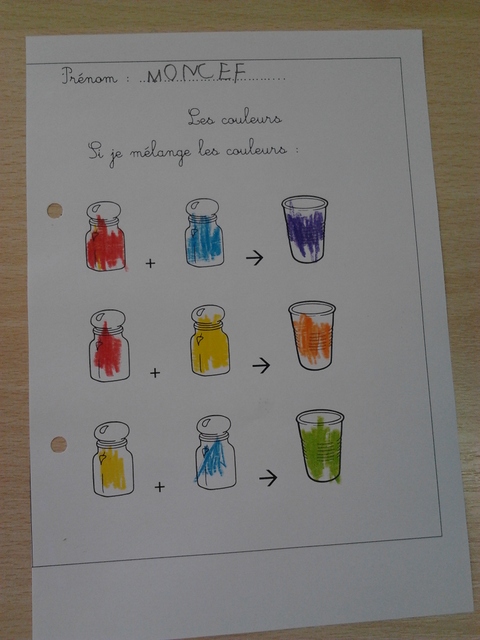 Prénom : MONCEF
Les couleurs
Si je mélange les couleurs :
+ →
+ →
+ →